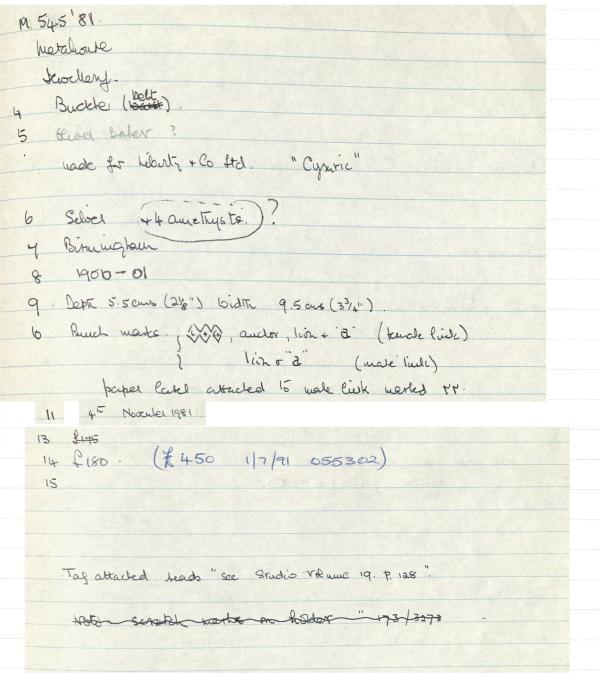 M. 545 '81.
Metalwork
Jewellery.
4 Buckle (belt).
5 Oliver Baker ?
made for Liberty & Co Ltd. "Cymric"
6 Silver + 4 amethysts. ?
7 Birmingham
8 1900-01
9 Depth 5.5cms (2⅛") width 9.5cms (3¾").
10 Punch marks. L & C, anchor, lion + "a" (female link)
lion & "a" (male link)
paper label attached to male link marked
11 4th November 1981
13 £175
14 £180. (£450 1/7/91 055302)
15
Tag attached reads "See Studio Volume 19. P. 128".
Note scratch marks on holder "173/3373